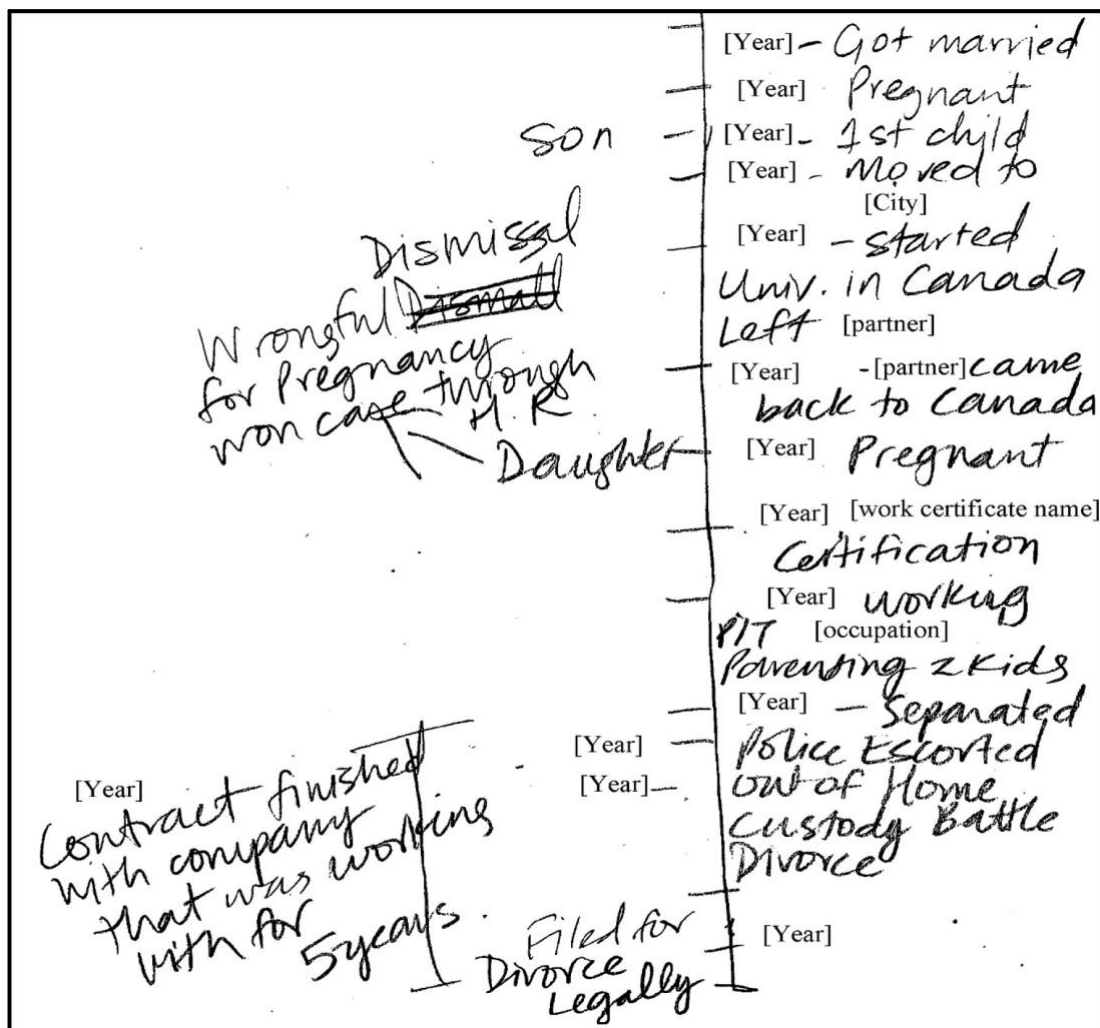 [Year] – Got married
[Year] Pregnant
son
[Year] - 1st child
[Year] - Moved to
[City]
[Year] - started
Univ. in Canada
Left [partner]
Dismissal
Wrongful Dismall
for Pregnancy
won case through
H.R
Daughter
[Year] -[partner] came
back to Canada
[Year] Pregnant
[Year] [work certificate name]
Certification
[Year] working
P/T [occupation]
Parenting 2 Kids
[Year] - Separated
[Year] Police Escorted
[Year] - out of Home
Custody Battle
Divorce
[Year]
Contract finished
with company
that was working
with for
5 years.
[Year]
Filed for
Divorce
Legally